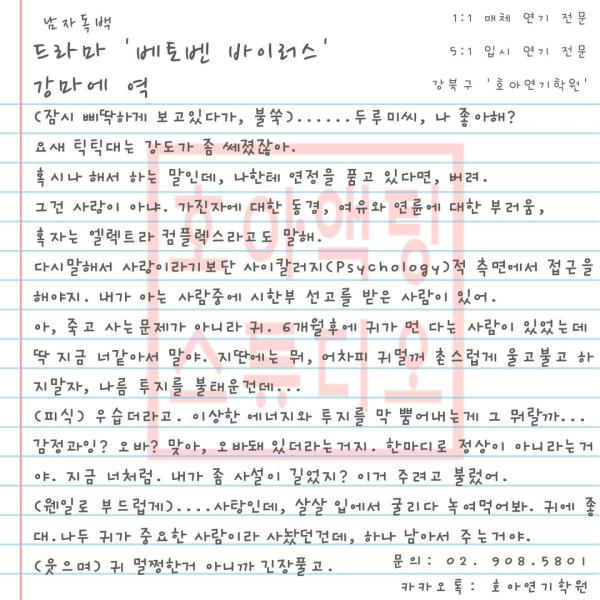 남자독백
1:1 매체 연기 전문
드라마 '베토벤 바이러스'
5:1 입시 연기 전문
강마에 역
강북구 '호아연기학원'
(잠시 삐딱하게 보고있다가, 불쑥)......두루미씨, 나 좋아해?
요새 틱틱대는 강도가 좀 쎄졌잖아.
혹시나 해서 하는 말인데, 나한테 연정을 품고 있다면, 버려.
그건 사랑이 아냐. 가진자에 대한 동경, 여유와 연륜에 대한 부러움,
혹자는 엘렉트라 컴플렉스라고도 말해.
다시말해서 사랑이라기보단 사이칼러지(Psychology)적 측면에서 접근을
해야지. 내가 아는 사람중에 시한부 선고를 받은 사람이 있어.
아, 죽고 사는문제가 아니라 귀. 6개월후에 귀가 먼 다는 사람이 있었는데
딱 지금 너같아서 말야. 지딴에는 뭐, 어차피 귀멀꺼 촌스럽게 울고불고 하
지말자, 나름 투지를 불태운건데...
(피식) 우습더라고. 이상한 에너지와 투지를 막 뿜어내는게 그 뭐랄까...
감정과잉? 오바? 맞아, 오바돼 있더라는거지. 한마디로 정상이 아니라는거
야. 지금 너처럼. 내가 좀 사설이 길었지? 이거 주려고 불렀어.
(웬일로 부드럽게)....사탕인데, 살살 입에서 굴리다 녹여먹어봐. 귀에 좋
대.나두 귀가 중요한 사람이라 사놨던건데, 하나 남아서 주는거야.
(웃으며) 귀 멀쩡한거 아니까 긴장풀고.
문의: 02. 908.5801
카카오톡: 호아연기학원
호아액팅
스튜디오